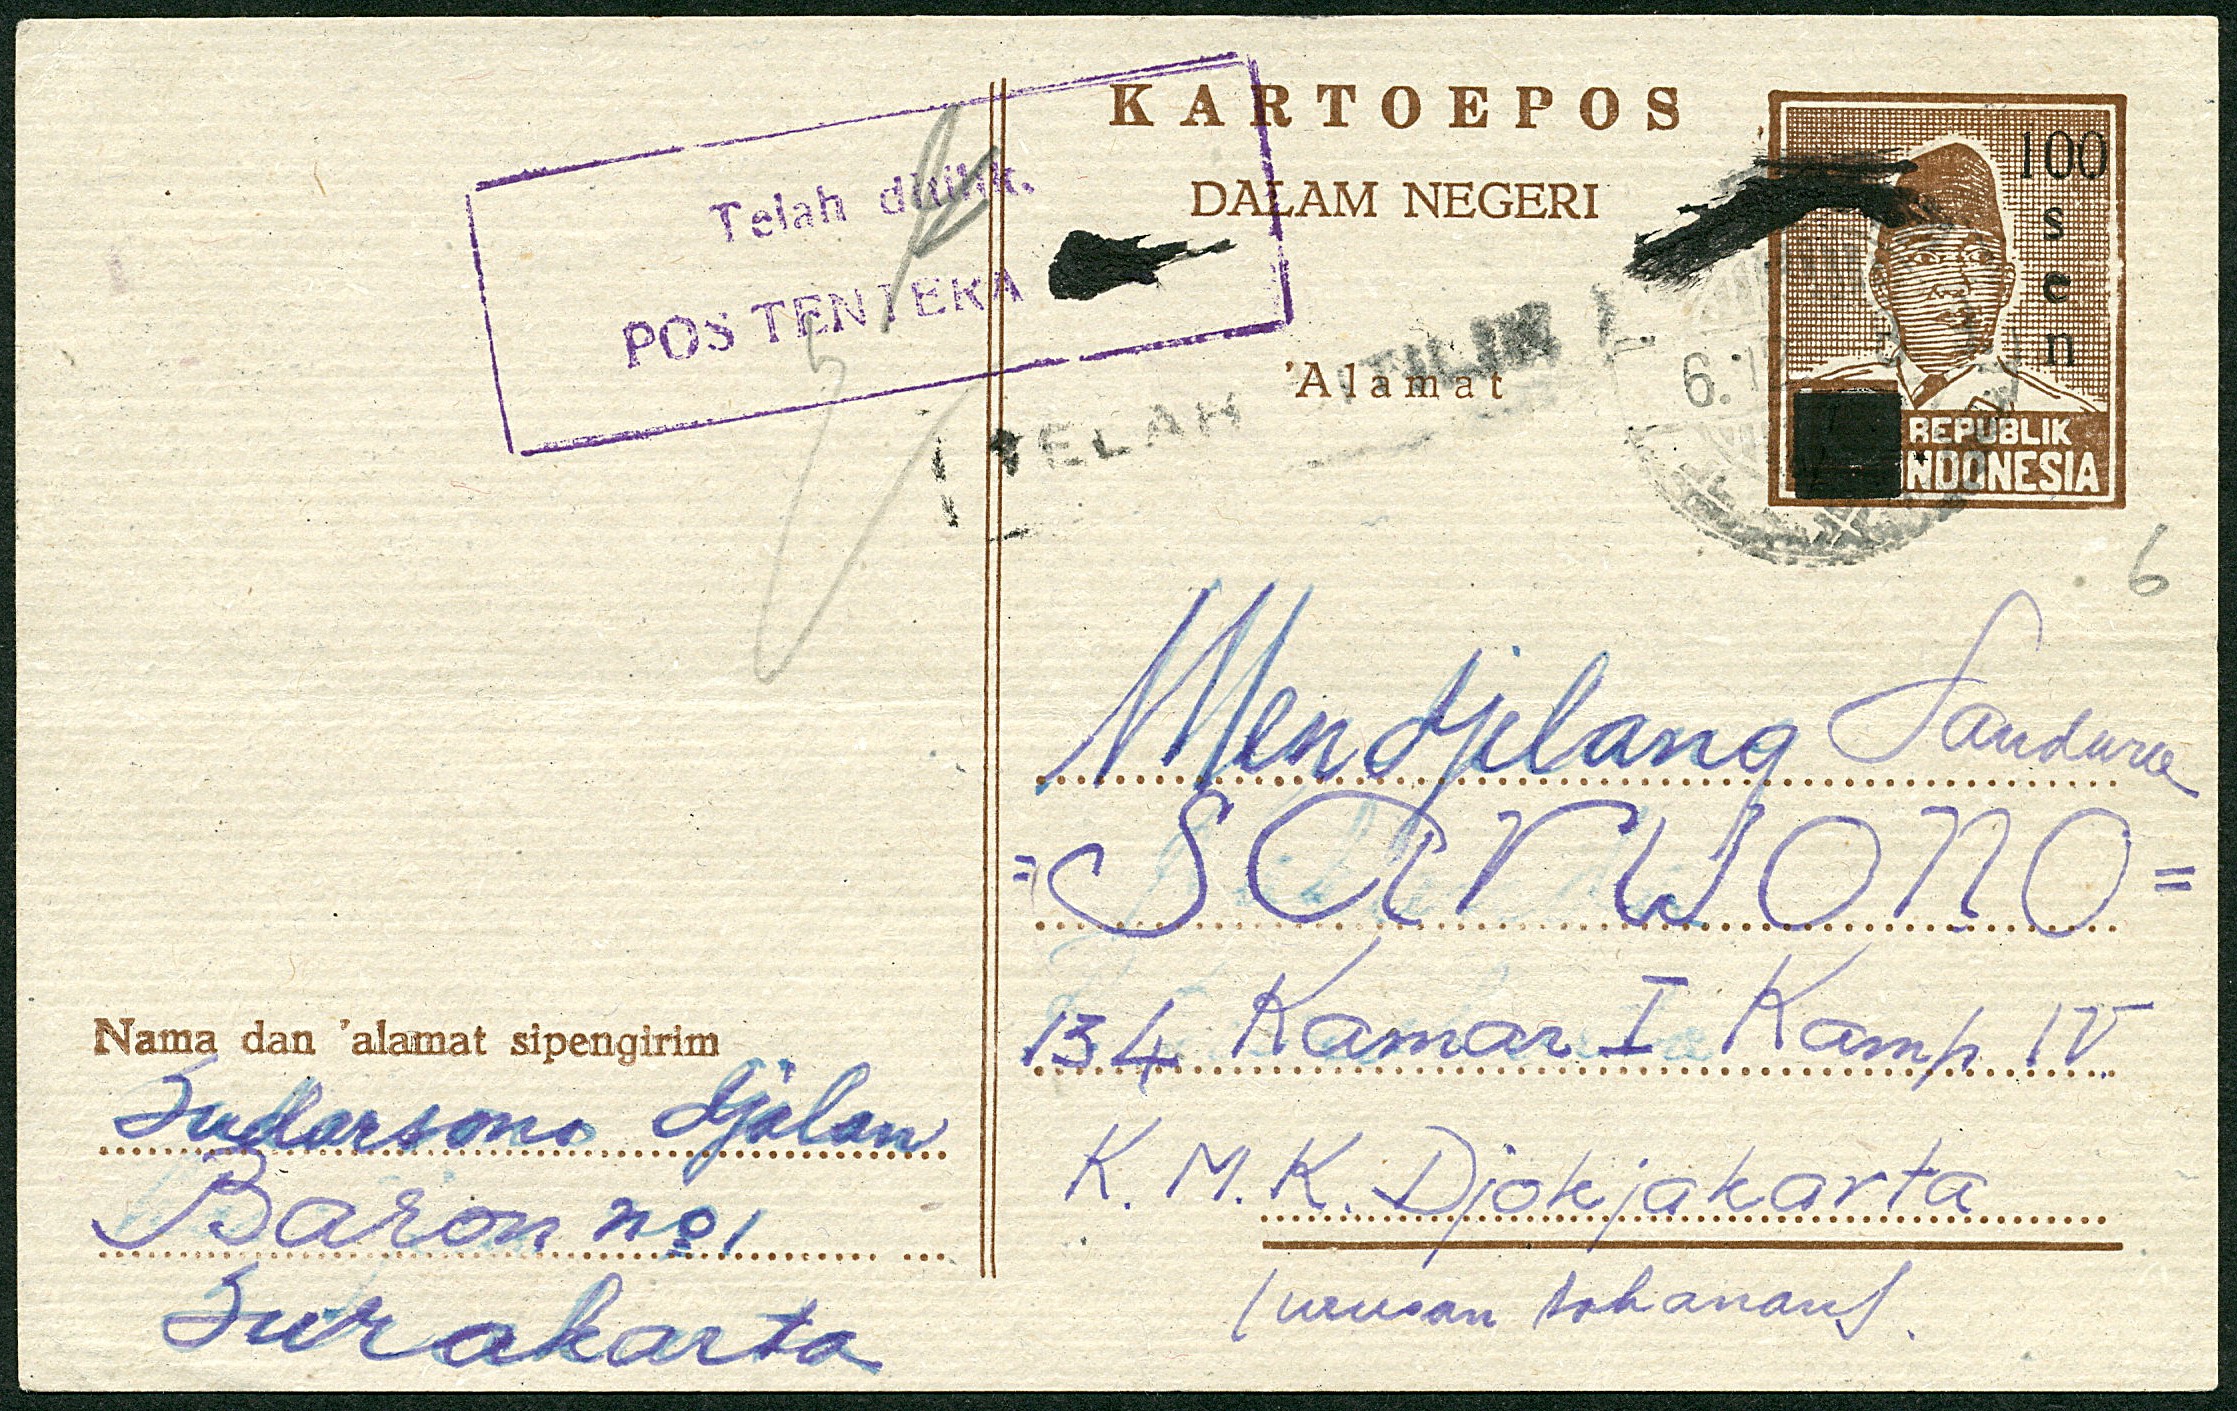 KARTOEPOS
DALAM NEGERI
100
sen
REPUBLIK
INDONESIA
Telah ditilik.
POS TENTEKA
'Alamat
TELAH DITILIK
6
Mendjelang Saudara
= Sarwono =
134 Kamar I Kamp IV
K. M. K. Djokjakarta
(urusan tahanan).
Nama dan 'alamat sipengirim
Sudarsono djalan
Baron no 1
Surakarta